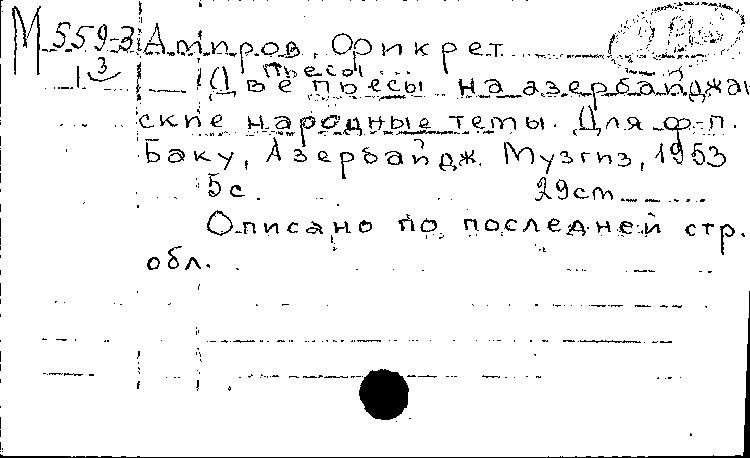 М 559-3 Амиров, Фикрет
1 3
пьесы
Две пьесы на азербайджан
ские народные темы. Для ф-п.
Баку, Азербайдж. Музгиз, 1953
5с. 29cm
Описано по последней стр.
обл.